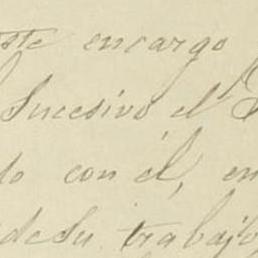 este encargo
Sucesivo el
do con él, en
de su trabajo,